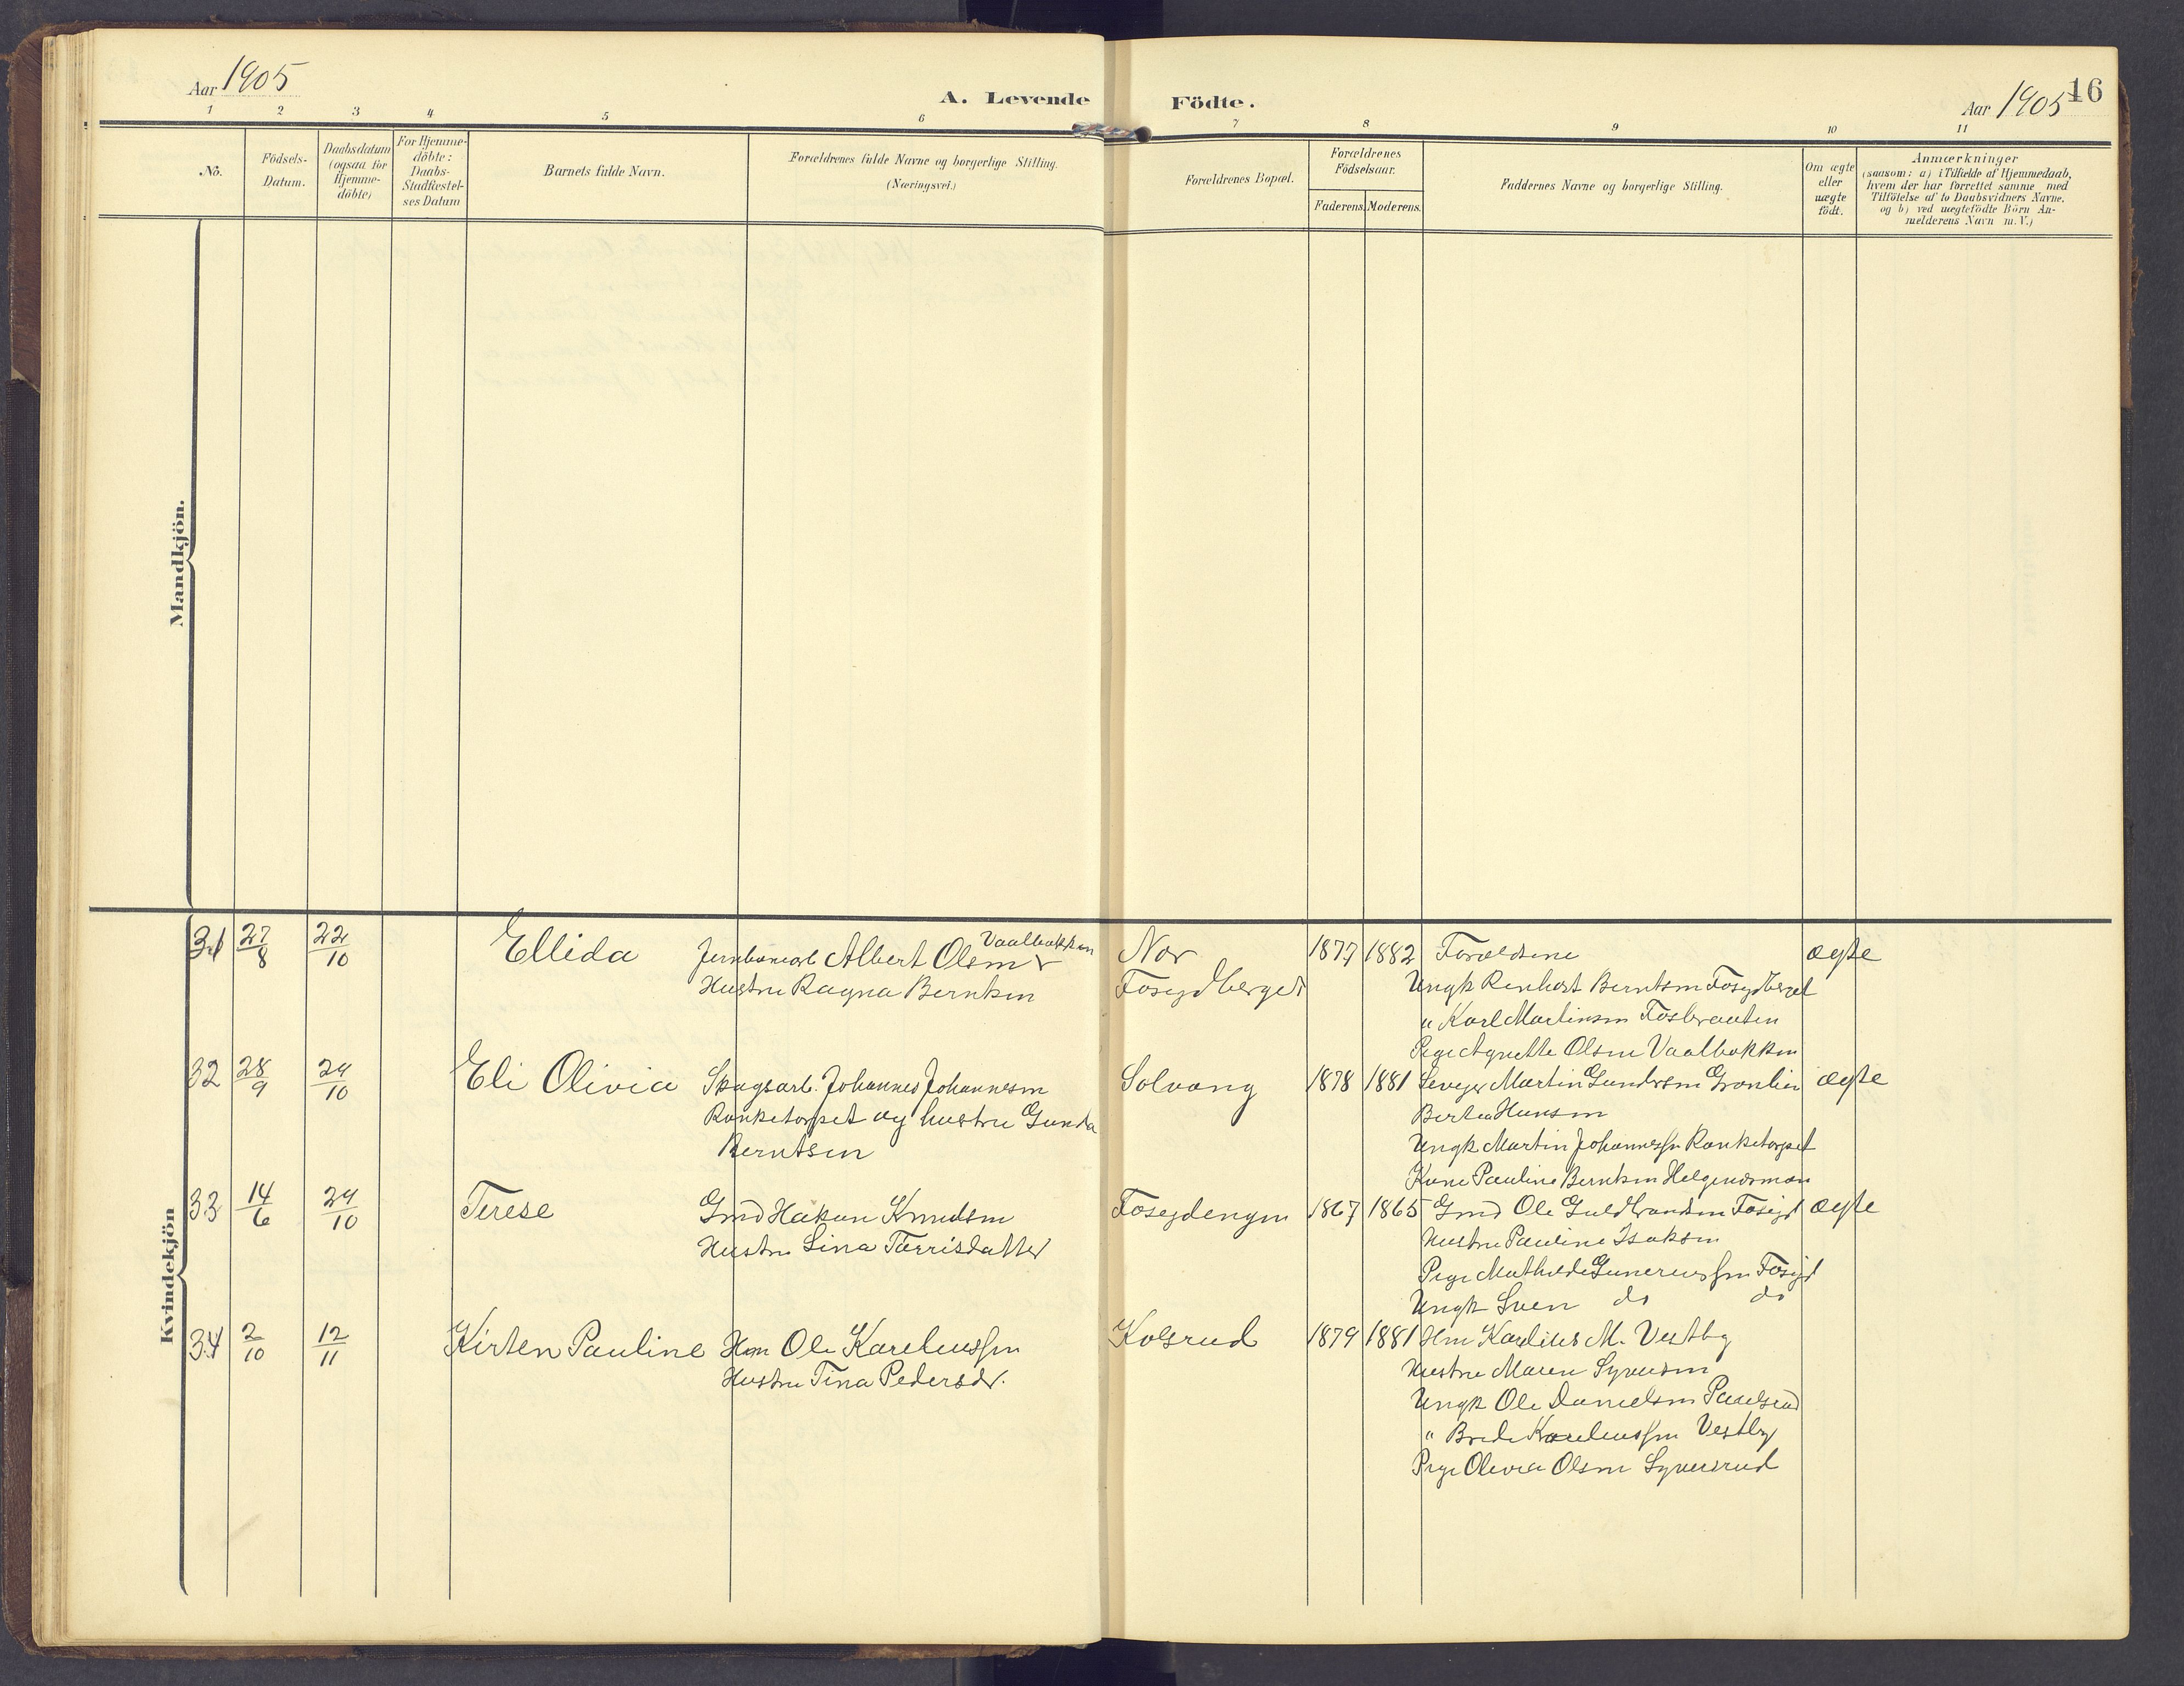 Aar 1905
A. Levende Födte.
Aar 1905
16
1 2 3 4 5 6 7 8 9 10 11
No.
Födsels-Datum.
Daabsdatum (ogsaa for Hjemme-döbte)
For Hjemme-döbte: Daabs-Stadfæstel-ses Datum
Barnets fulde Navn.
Forældrenes fulde Navne og borgerlige Stilling.
(Næringsvei.)
Forældrenes Bopæl.
Forældrenes Födselsaar.
Faderens. Moderens.
Faddernes Navne og borgerlige Stilling.
Om ægte eller uægte födt.
Anmærkninger
(saasom: a) i Tilfælde af Hjemmedaab,
hvem der har forrettet samme med
Tilföielse af to Daabsvidners Navne,
og b) ved uægtefödte Börn An-
melderens Navn m. V.)
Mandkjön.
Kvindekjön
31 27/8 22/10 Ellida
Jernbanearb Albert Olsen Vaalbakken
Hustru Ragna Berntsen
Nor
Fosegdberget
1877 1882
Forældrene
Ungk Renhart Berntsen Fosegdberget
" Karl Martinsen Fosbraaten
Pige Agnette Olsen Vaalbakken
ægte
32 28/9 29/10 Eli Olivia
Skogsarb. Johannes Johannesen
Ranketorpet og hustru Gunda
Berntsen
Solvang
1878 1881
Sveiger Martin Gundersen Grønlien
Berthe Hansen
Ungk Martin Johannessen Ranketorpet
Kone Pauline Berntsen Helgendsmoen
ægte
33 14/6 29/10 Terese
Gmd Hakon Knudsen
Hustru Lina Tørrisdatter
Fosegdengen
1867 1865
Gmd Ole Guldbrandsen Fosegd
Hustru Pauline Isaksen
Pige Mathilde Gunerussen Fosegd
Ungk Sven do do
ægte
34 2/10 12/11 Kirsten Pauline
Hm Ole Kareliussen
Hustru Tina Pedersdr.
Kolsrud
1879 1881
Hm Karelius M. Vestby
Hustru Maren Syversen
Ungk Ole Danielsen Paulsrud
" Brede Kareliussen Vestby
Pige Olivia Olsen Syversrud